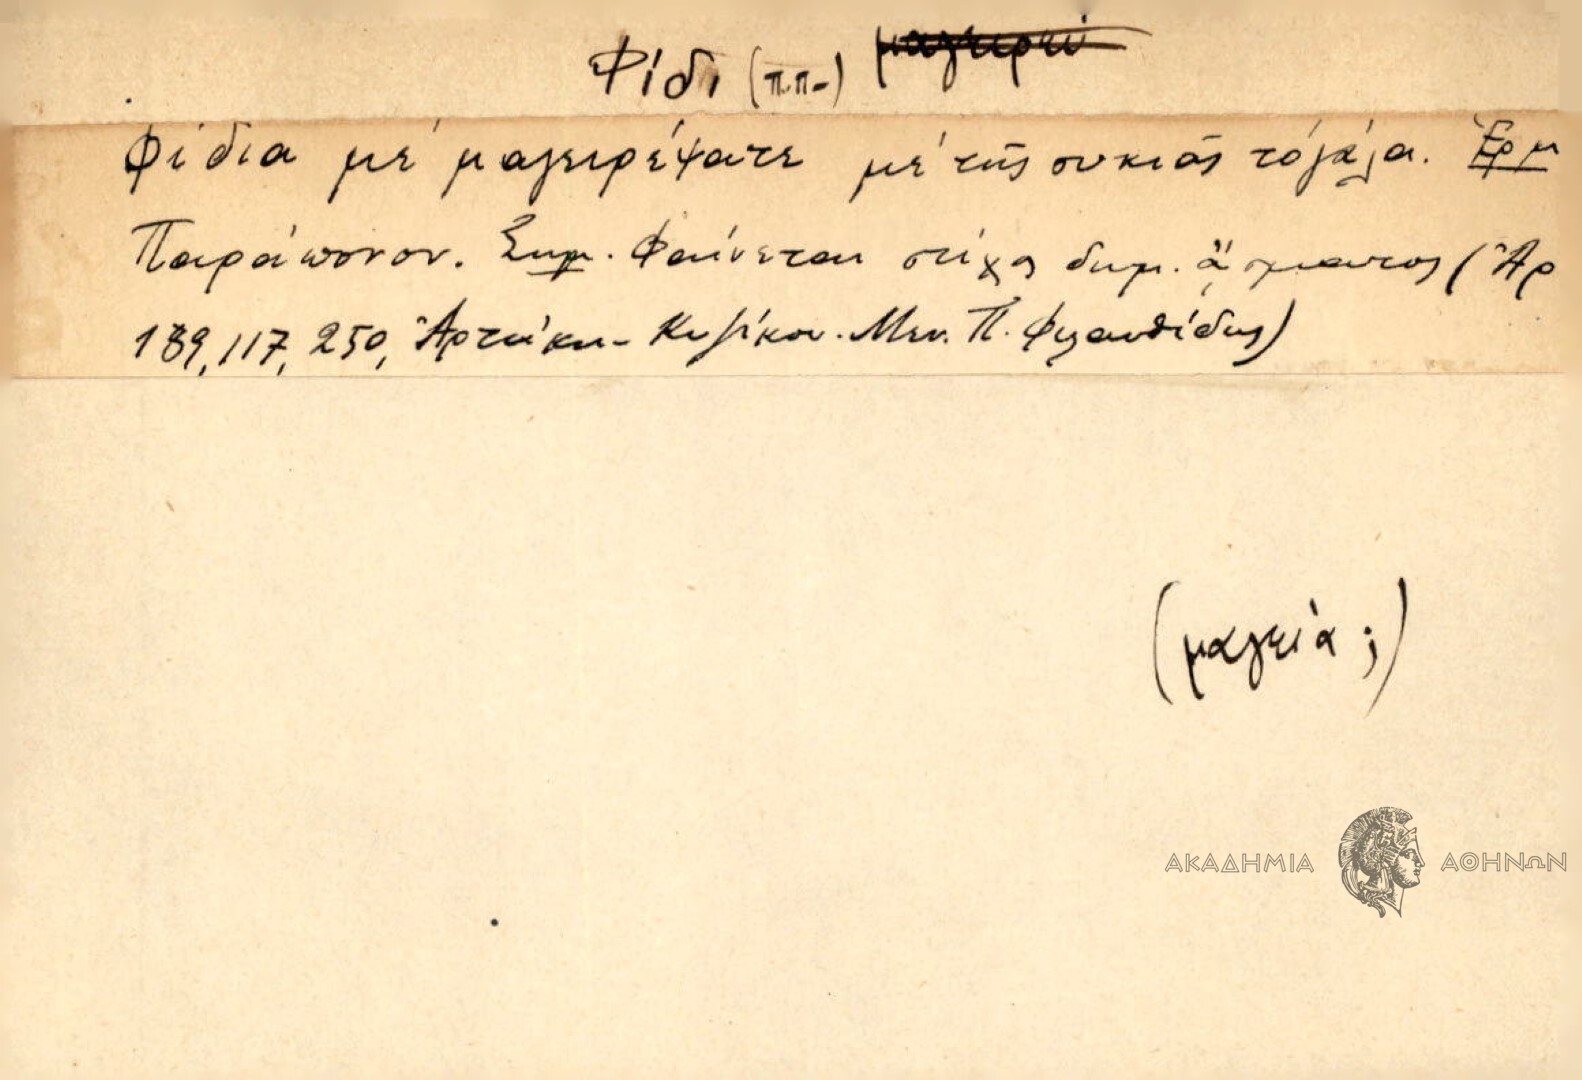 Φίδι (π.π.) μαγειρεύ
Φίδια μέ μαγειρέψατε μέ τῆς συκιᾶς τό γάλα. Ἑρμ
Παράπονον. Σημ. Φαίνεται στίχος δημ. ᾄσματος (Ἀρ
189, 117, 250, Ἀρτάκη - Κυζίκου. Μεν. Π. Φιλανθίδης)
(μαγεία ;)
ΑΚΑΔΗΜΙΑ ΑΘΗΝΩΝ